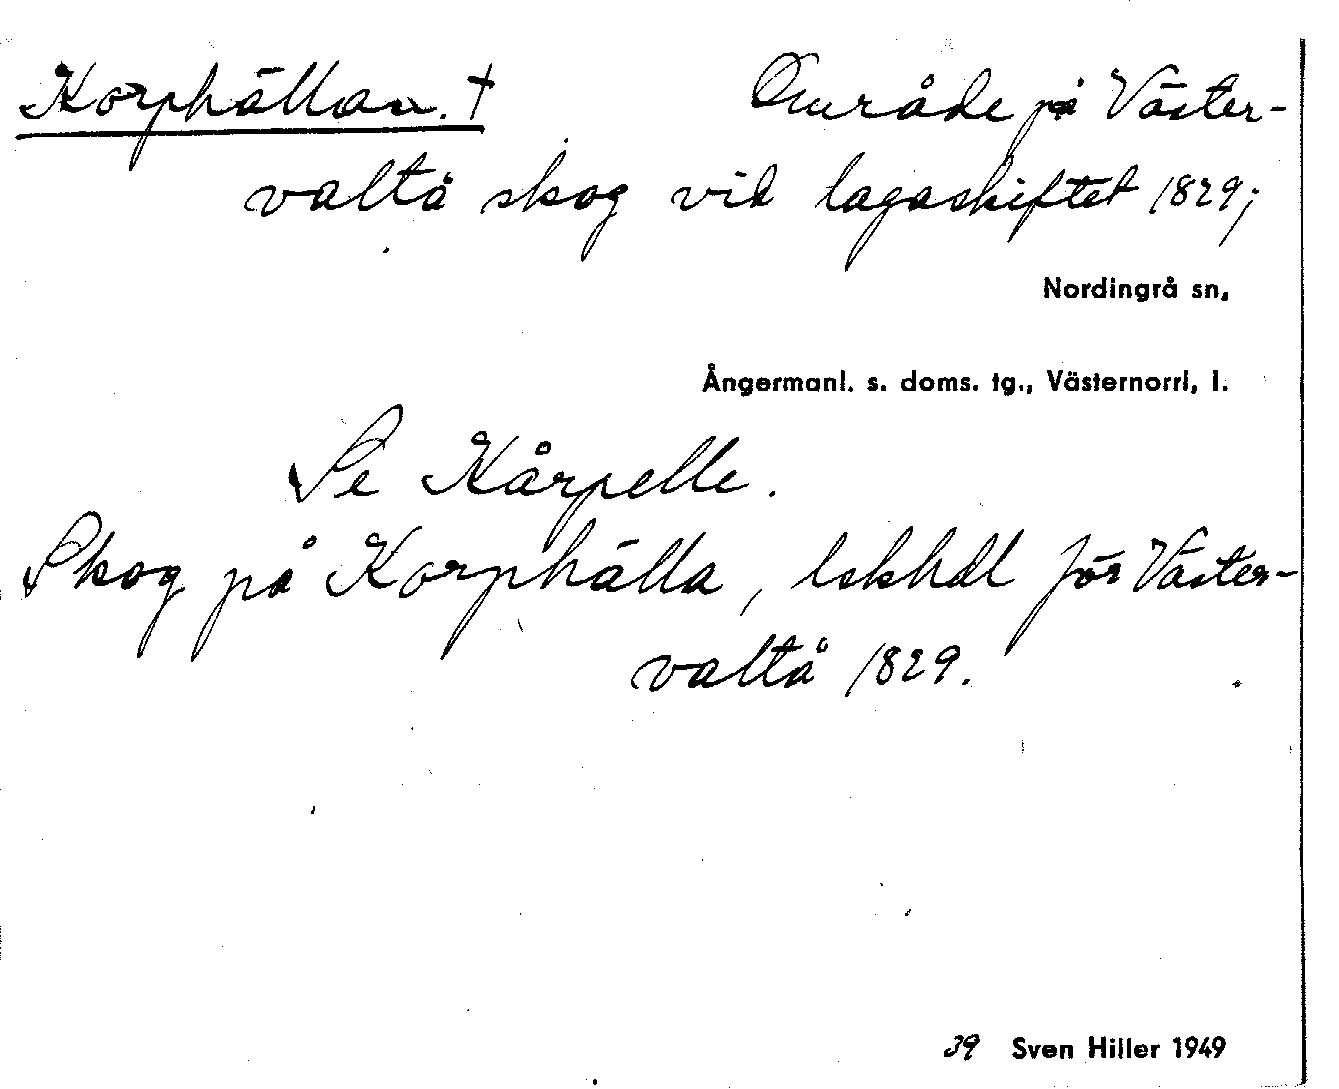 Korphällan. † Område på Väster-
valtå skog vid lagaskiftet 1829;
Nordingrå sn,
Ångermanl. s. doms. tg., Västernorrl, l.
Se Kårpelle.
Skog på Korphälla, lskhdl för Väster-
valtå 1829.
39 Sven Hiller 1949